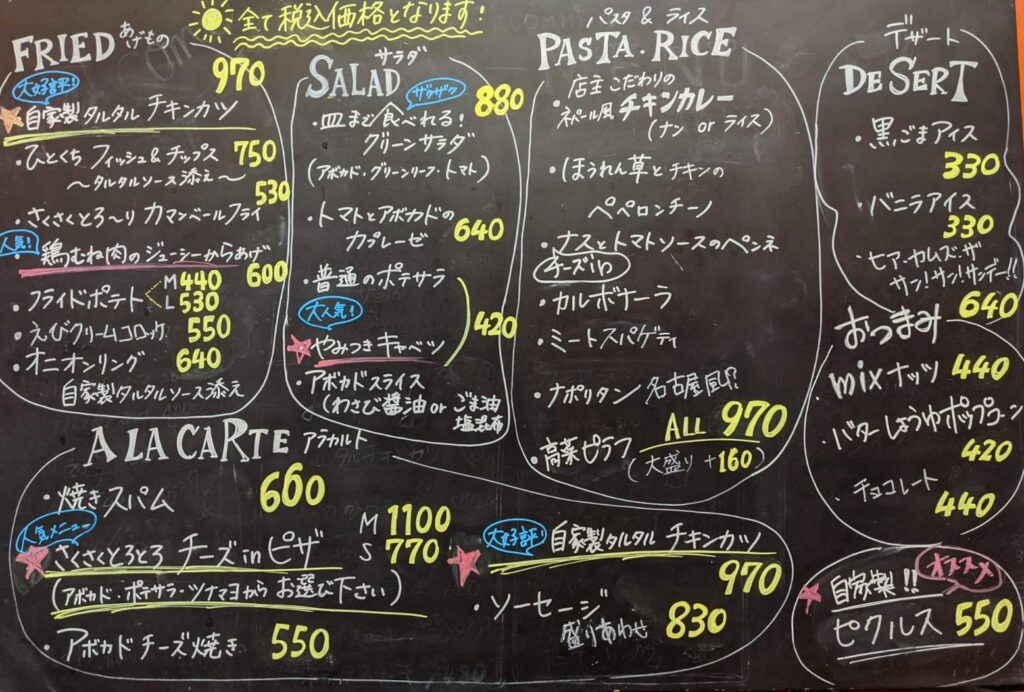 全て税込価格となります!
FRIED あげもの
大好評!
自家製タルタル チキンカツ 970
・ひとくち フィッシュ&チップス 750
〜タルタルソース添え〜
・さくさくとろ〜り カマンベールフライ 530
人気!
・鶏むね肉のジューシーからあげ 600
・フライドポテト M 440
L 530
・えびクリームコロッケ 550
・オニオンリング 640
自家製タルタルソース添え
サラダ
SALAD
ザクザク
・皿まで食べれる! 880
グリーンサラダ
(アボカド・グリーンリーフ・トマト)
・トマトとアボカドの
カプレーゼ 640
・普通のポテサラ
大人気!
やみつきキャベツ 420
・アボカドスライス
(わさび醤油 or ごま油
塩昆布
パスタ & ライス
PASTA・RICE
店主こだわりの
・ネパール風 チキンカレー
(ナン or ライス)
・ほうれん草とチキンの
ペペロンチーノ
・ナスとトマトソースのペンネ
チーズin
・カルボナーラ
・ミートスパゲティ
・ナポリタン 名古屋風!?
・高菜ピラフ ALL 970
(大盛り +160)
デザート
DESERT
・黒ごまアイス
330
・バニラアイス
330
・ヒア・カムズ・ザ
サン!サン!サンデー!!
640
おつまみ
・mixナッツ 440
・バターしょうゆポップコーン
420
・チョコレート
440
A LA CARTE アラカルト
・焼きスパム 660
人気メニュー
さくさくとろとろ チーズinピザ M 1100
S 770
(アボカド・ポテサラ・ツナマヨから お選び下さい)
・アボカドチーズ焼き 550
大好評!
自家製タルタル チキンカツ
970
・ソーセージ
盛りあわせ 830
オススメ
自家製!!
ピクルス 550